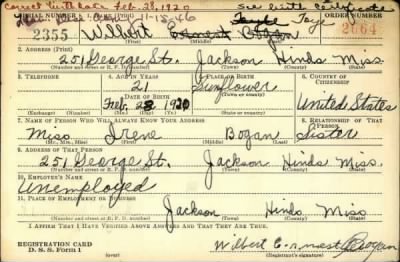 Correct birth date Feb. 28, 1920 See birth Certificate
11-15-46
SERIAL NUMBER 1. NAME (Print) ORDER NUMBER
2355 Wilbert Ernest Bogan Faye
2. ADDRESS (Print)
251 George St. Jackson Hinds Miss.
(Number and street or R. F. D. number) (Town) (County) (State)
3. TELEPHONE 4. AGE IN YEARS 5. PLACE OF BIRTH 6. COUNTRY OF CITIZENSHIP
21 Sunflower
DATE OF BIRTH (Town or county)
Feb. 28 1920 United States
(Exchange) (No.) (Mo.) (Day) (Yr.) (State or country)
7. NAME OF PERSON WHO WILL ALWAYS KNOW YOUR ADDRESS 8. RELATIONSHIP OF THAT PERSON
Miss Irene Bogan Sister
(Mr., Mrs., Miss) (First) (Middle) (Last)
9. ADDRESS OF THAT PERSON
251 George St. Jackson Hinds Miss.
(Number and street or R. F. D. number) (Town) (County) (State)
10. EMPLOYER'S NAME
Unemployed
11. PLACE OF EMPLOYMENT OR BUSINESS
Jackson Hinds Miss
(Number and street or R. F. D. number) (Town) (County) (State)
I AFFIRM THAT I HAVE VERIFIED ABOVE ANSWERS AND THAT THEY ARE TRUE.
REGISTRATION CARD
D. S. S. Form 1
Wilbert Ernest Bogan
(Registrant's signature)